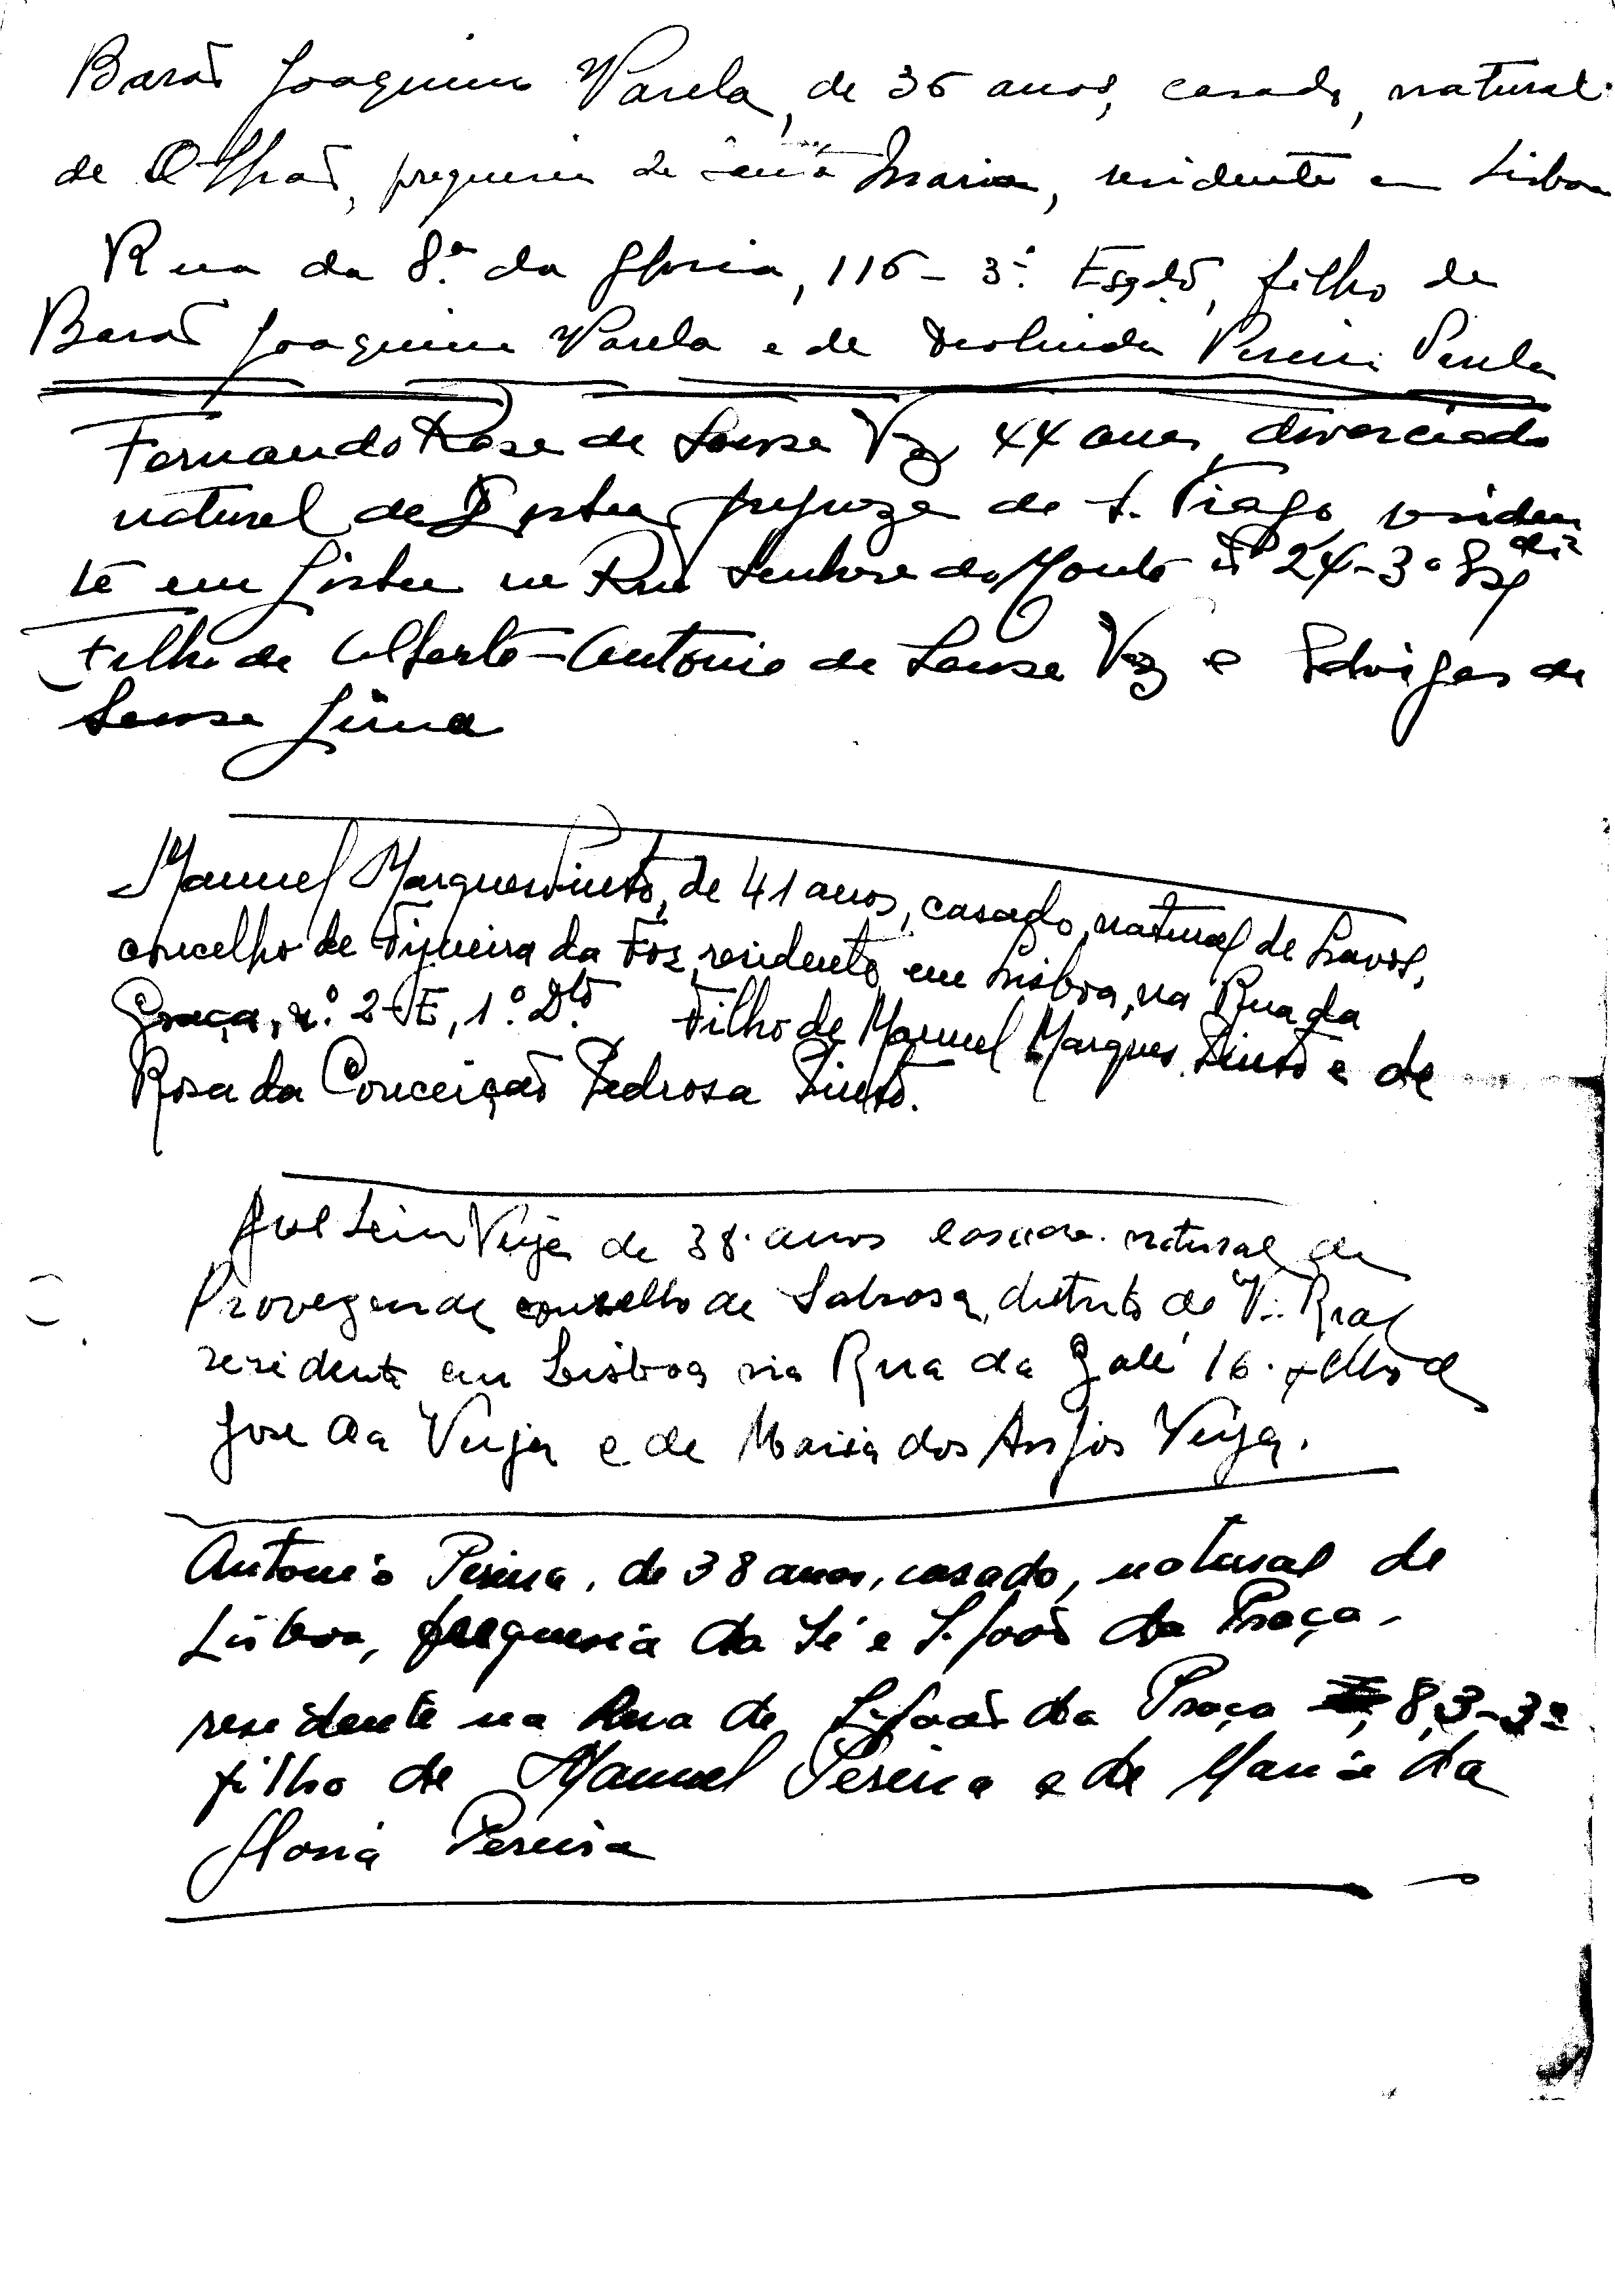 Barão Joaquim Varela, de 36 anos, casado, natural
de Olhão, freguesia de Santa Maria, residente em Lisboa
Rua da 8.ª da Glória, 116 - 3.º Esqdº, filho de
Barão Joaquim Varela e de Deolinda Pereira Varela
Fernando Rosa de Sousa Vaz 44 anos, divorciado
natural de Lisboa freguezia de S. Tiago residen
te em Lisboa na Rua Senhora do Monte nº 24-3º Esq
Filho de Alberto António de Sousa Vaz e Edviges de
Sousa Lima
Manuel Marques Pinto, de 41 anos, casado, natural de Lavos,
concelho de Figueira da Foz, residente em Lisboa, na Rua da
Graça, n.º 2-E, 1.º Dtº Filho de Manuel Marques Pinto e de
Rosa da Conceição Pedrosa Pinto.
Veiga de 38 anos casado natural de
Provezende concelho de Sabrosa, distrito de V. Real
residente em Lisboa na Rua da Galé 16. filho de
José da Veiga e de Maria dos Anjos Veiga.
António Pereira, de 38 anos, casado, natural de
Lisboa, freguesia da Sé e S. João da Praça,
residente na Rua de S. João da Praça 83-3º
filho de Manuel Pereira e de Maria da
Glória Pereira